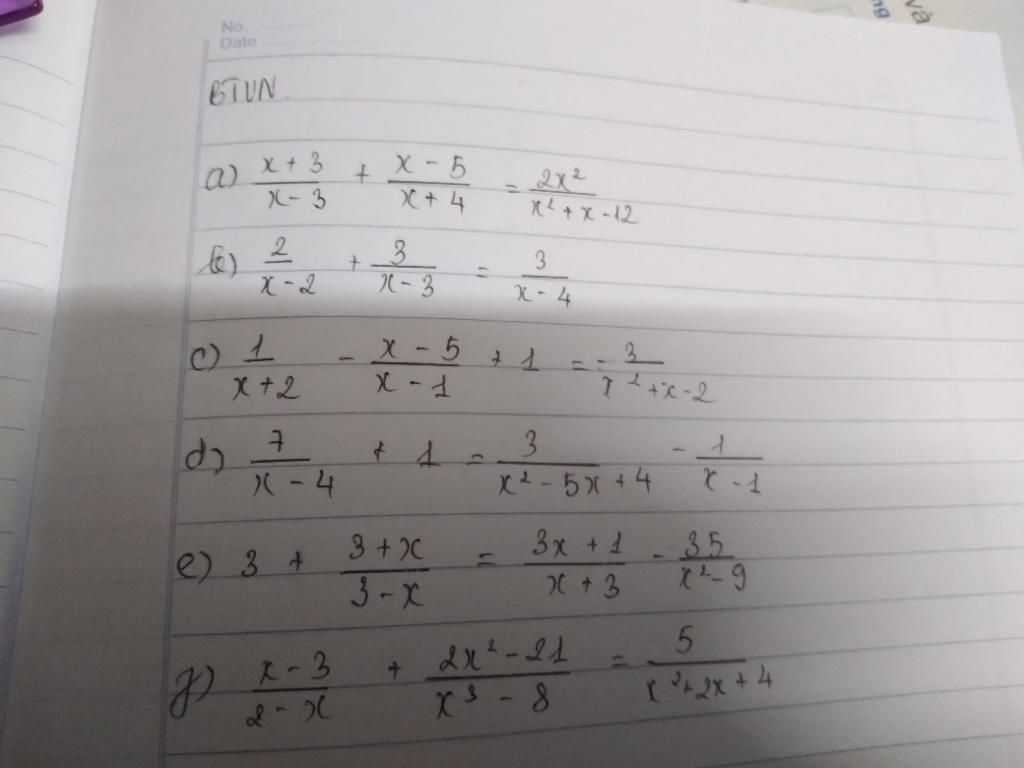 và
ng
No. ..........
Date ....................
BTVN.
a) \frac{x+3}{x-3} + \frac{x-5}{x+4} = \frac{2x^2}{x^2+x-12}
b) \frac{2}{x-2} + \frac{3}{x-3} = \frac{3}{x-4}
c) \frac{1}{x+2} - \frac{x-5}{x-1} + 1 = -\frac{3}{x^2+x-2}
d) \frac{7}{x-4} + 1 = \frac{3}{x^2-5x+4} - \frac{1}{x-1}
e) 3 + \frac{3+x}{3-x} = \frac{3x+1}{x+3} - \frac{35}{x^2-9}
f) \frac{x-3}{2-x} + \frac{2x^2-21}{x^3-8} = \frac{5}{x^2+2x+4}